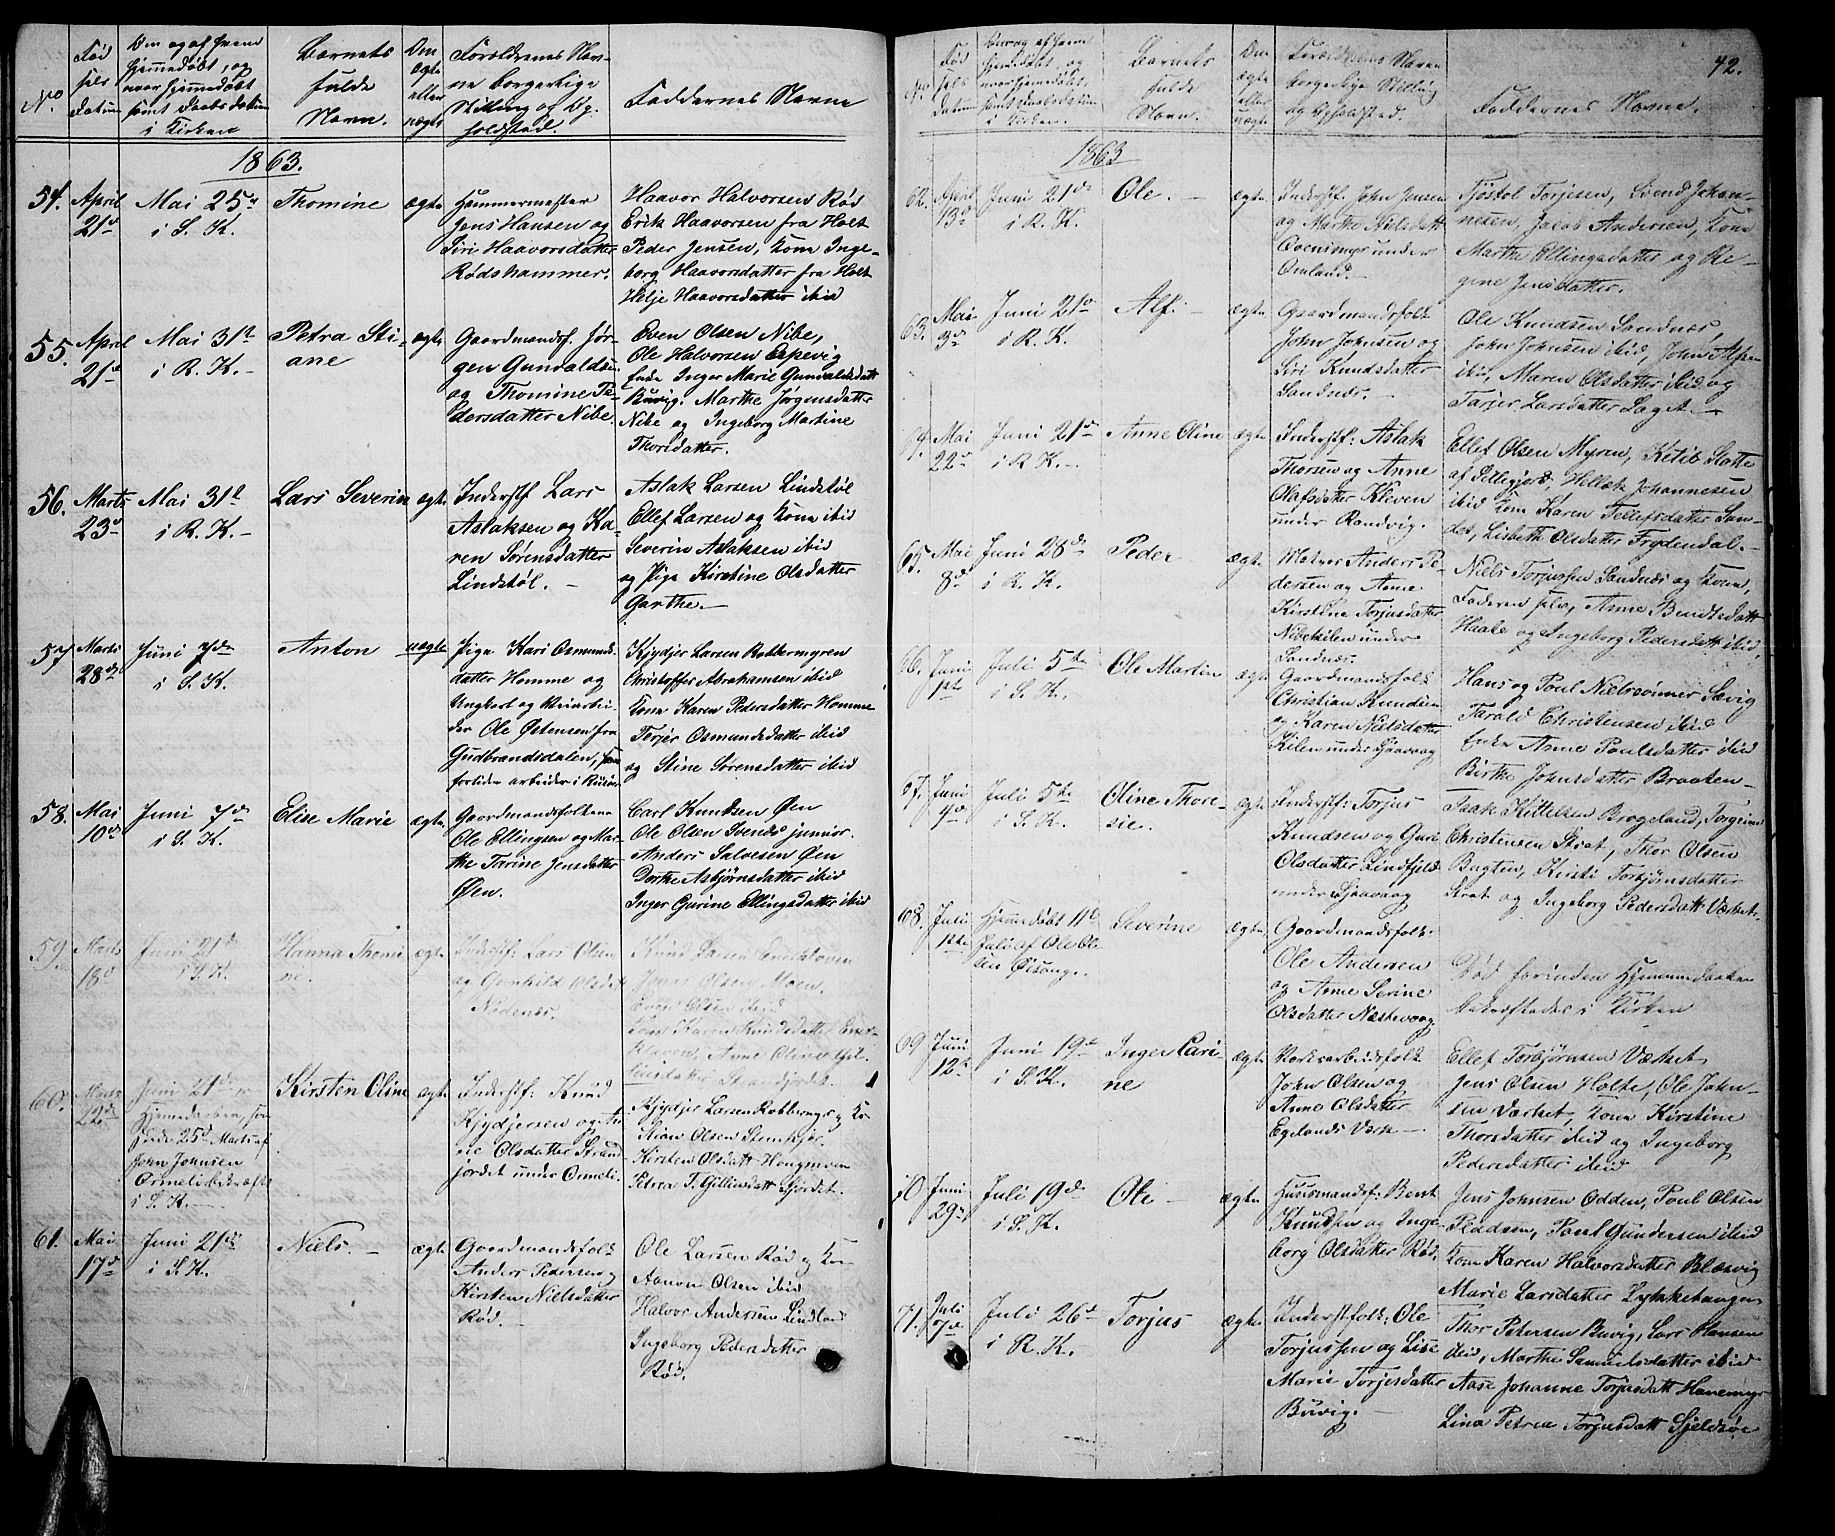 No
Fød
sels
datum
Om og af hvem
hjemmedøbt, og
naar hjemmedøbt
samt Daabsdatum
i Kirken
Barnets
fulde
Navn.
Om
ægte
eller
uægte
Forældrenes Nav-
ne borgerlige
Stilling og Op-
holdsted.
Faddernes Navne
1863.
54. April 21d
Mai 25d
i S. K.
Thomine
ægte
Hammermester
Jens Hansen og
Siri Haavorsdatter
Rødshammer.
Haavor Halvorsen Rød
Erik Haavorsen fra Holt
Peder Jensen, Kona Inge-
borg Haavorsdatter fra Holt
Helje Haavorsdatter ibid
55. April 21d
Mai 31te
i R. K. –
Petra Sti-
ane
ægte
Gaardmandsf. Jør-
gen Gunvaldsen
og Thomine Pe-
dersdatter Nibe.
Even Olsen Nibe,
Ole Halvorsen Espevig
Enke Inger Marie Gunvaldsdatt
Buvig. Marthe Jørgensdatter
Nibe og Ingeborg Martine
Thorsdatter.
56. Marts 23d
Mai 31t
i R. K. –
Lars Severin
ægte
Inderstf Lars
Aslaksen og Ka-
ren Sørensdatter
Lindstøl. –
Aslak Larsen Lindstøl
Ellef Larsen og Kona ibid
Severin Aslaksen ibid
og Pige Kirstine Olsdatter
Garthe. –
57 Marts 28de
Juni 7de
i S. K.
Anton
uægte
Pige Kari Osmunds
datter Homme og
Ungkarl og Veiarbei-
der Ole Østensen fra
Gudbrandsdalen, for
fortiden arbeider i Risør
Kjydjer Larsen Robbermyren
Christoffer Abrahamsen ibid
Kona Karen Pedersdatter Homme
Terjer Osmundsdatter ibid
og Stine Sørensdatter ibid
58. Mai 10de
Juni 7de
i S. K.
Elise Marie
ægte
Gaardmandsfolkene
Ole Ellingsen og Mar-
the Tarine Jensdatter
Øen.
Carl Knudsen Øen
Ole Olsen Svends junior.
Anders Salvesen Øen
Dorthe Asbjørnsdatter ibid
Inger Gurine Ellingsdatter ibid
59. Marts 18d
Juni 21de
i S. K.
Hanna Thomi
ne.
ægte
Inderstf: Lars Olsen
og Gunhild Olsdatt
Nødenes.
Knud Larsen
Jens Olsen Moen,
Even Olsen ibid
Kona Karen Knudsdatter
60. Marts 22de
Juni 21de
Hjemmedøben, for
25d Marts af
John Johnsen
Ormeli bekræftet
i S. K.
Kirsten Oline
ægte
Inderstf: Knud
Kjydjersen og An-
ne Olsdatter Strand-
jordet under Ormeli.
Kjydjer Larsen Robbermyr og Ko
Kirsten Olsdatt Hougmoen
Petra T. Gjellinsdatt Fjordet.
61. Mai 17d
Juni 21de
i S. K.
Niels. –
ægte
Gaardmandsfolk
Anders Pedersen og
Kirsten Nielsdatter
Rød. –
Ole Larsen Rød og Ko-
Aanon Olsen ibid
Halvor Andersen Lindland
Ingeborg Pedersdatter
Rød.
42.
No
Fød
sels
datum
Om og af hvem
hjemmedøbt, og
naar hjemmedøbt
samt Daabsdatum
i Kirken.
Barnets
fulde
Navn.
Om
ægte
eller
uægte
Forældrenes Navn
borgerlige Stilling
og Opholdsted.
Faddernes Navne.
1863
62. April 13d
Juni 21de
i R. K.
Ole. –
ægte
Inderstf. John Jensen
og Marthe Nielsdatt
Qvensmyr under
Omland. –
Tjøstol Torjesen, Svend Johan-
nesen, Jacob Andersen, Kona
Marthe Ellingsdatter og Re-
gine Jensdatter.
63. Mai 3d
Juni 21d
i R. K. –
Alf. –
ægte
Gaardmandsfolk
John Johnsen og
Siri Knudsdatter
Sandnæs. –
Ole Knudsen Sandnæs
John Johnsen ibid, John Alfsen
ibid, Maren Olsdatter ibid og
Tarjer Larsdatter Laget. –
64. Mai 22d
Juni 21d
i R K. –
Anne Oline
ægte
Inderstf: Aslak
Thorsen og Anne
Olafsdatter Kleven
under Randvig.
Ellef Olsen Myren, Ketil Slotte
af Sillejord, Hellek Johannesen
ibid Kona Karen Tellefsdatter San-
des, Lisbeth Olsdatter Frydendal. –
65. Mai 8d
Juni 28de
i R. K.
Peder –
ægte
Matros Anders Pe-
dersen og Anne
Kirstine Torjusdatter
Nibekilen under
Sandnæs.
Niels Torjussen Sandnæs og Kona,
Faderen selv, Anne Bendtsdatt
Haabe og Ingeborg Pedersdatt ibid,
66. Juni 1ste
Juli 5te
i S. K.
Ole Martin
ægte
Gaardmandsfolk
Christian Knudsen
og Karen Nielsdatter
Kilen under Sjaavaag
Hans og Poul Nielssønner Sævig
Tarald Christensen ibid
Enke Anne Poulsdatter ibid
Birthe Johnsdatter Braaten –
67. Juni 4d
Juli 5te
i S. K.
Oline Thore-
sie.
ægte
Inderstf: Torjus
Knudsen og Guri
Olsdatter Lindfjeld
under Sjaavaag
Isaak Kittelsen Brogeland, Jørgen
Christensen Strat, Thor Olsen
Bagten, Kirsti Torbjørnsdatter
Strat og Ingeborg Pedersdatt Værket.
68. Juli 1ste
Hjemmedøbt 11te
Juli af Ole Ol
sen Øisang. –
Severine
ægte
Gaardmandsfolk:
Ole Andersen
og Anne Serine
Olsdatter Næstevaag
Død forinden Hjemmedaaben
bekræftedes i Kirken
69 Juni 12t
Juni 19d
i S. K.
Inger Cari-
ne
ægte
Værksarbeidsfolk
John Olsen og
Anne Olsdatter
Egelands Værk –
Ellef Torbjørnsen Værket
Jens Olsen Holte, Ole John-
sen Værket, Kona Kirstine
Thorsdatter ibid og Ingeborg
Pedersdatter ibid
70 Juni 29d
Juli 19de
i S. K.
Ole –
ægte
Huusmandsf: Bent
Knudsen og Inge-
borg Olsdatter Rød.
Jens Johnsen Odden, Poul Olsen
Pladsen, Poul Gundersen ibid
Kona Karen Halvorsdatter Blæsvig
Marie Larsdatter Lykkehaugen
71. Juli 7de
Juli 26d
i R. K.
Torjus
ægte
Inderstfolk: Ole
Torjussen og Lise
Marie Torjesdatter
Buvig. –
Thor Petersen Buvig, Lars Hansen
ibid, Marthe Samuelsdatter ibid
Aase Johanne Torjusdatt Havemyr
Lina Petrea Torjusdatt Sjeldsøe